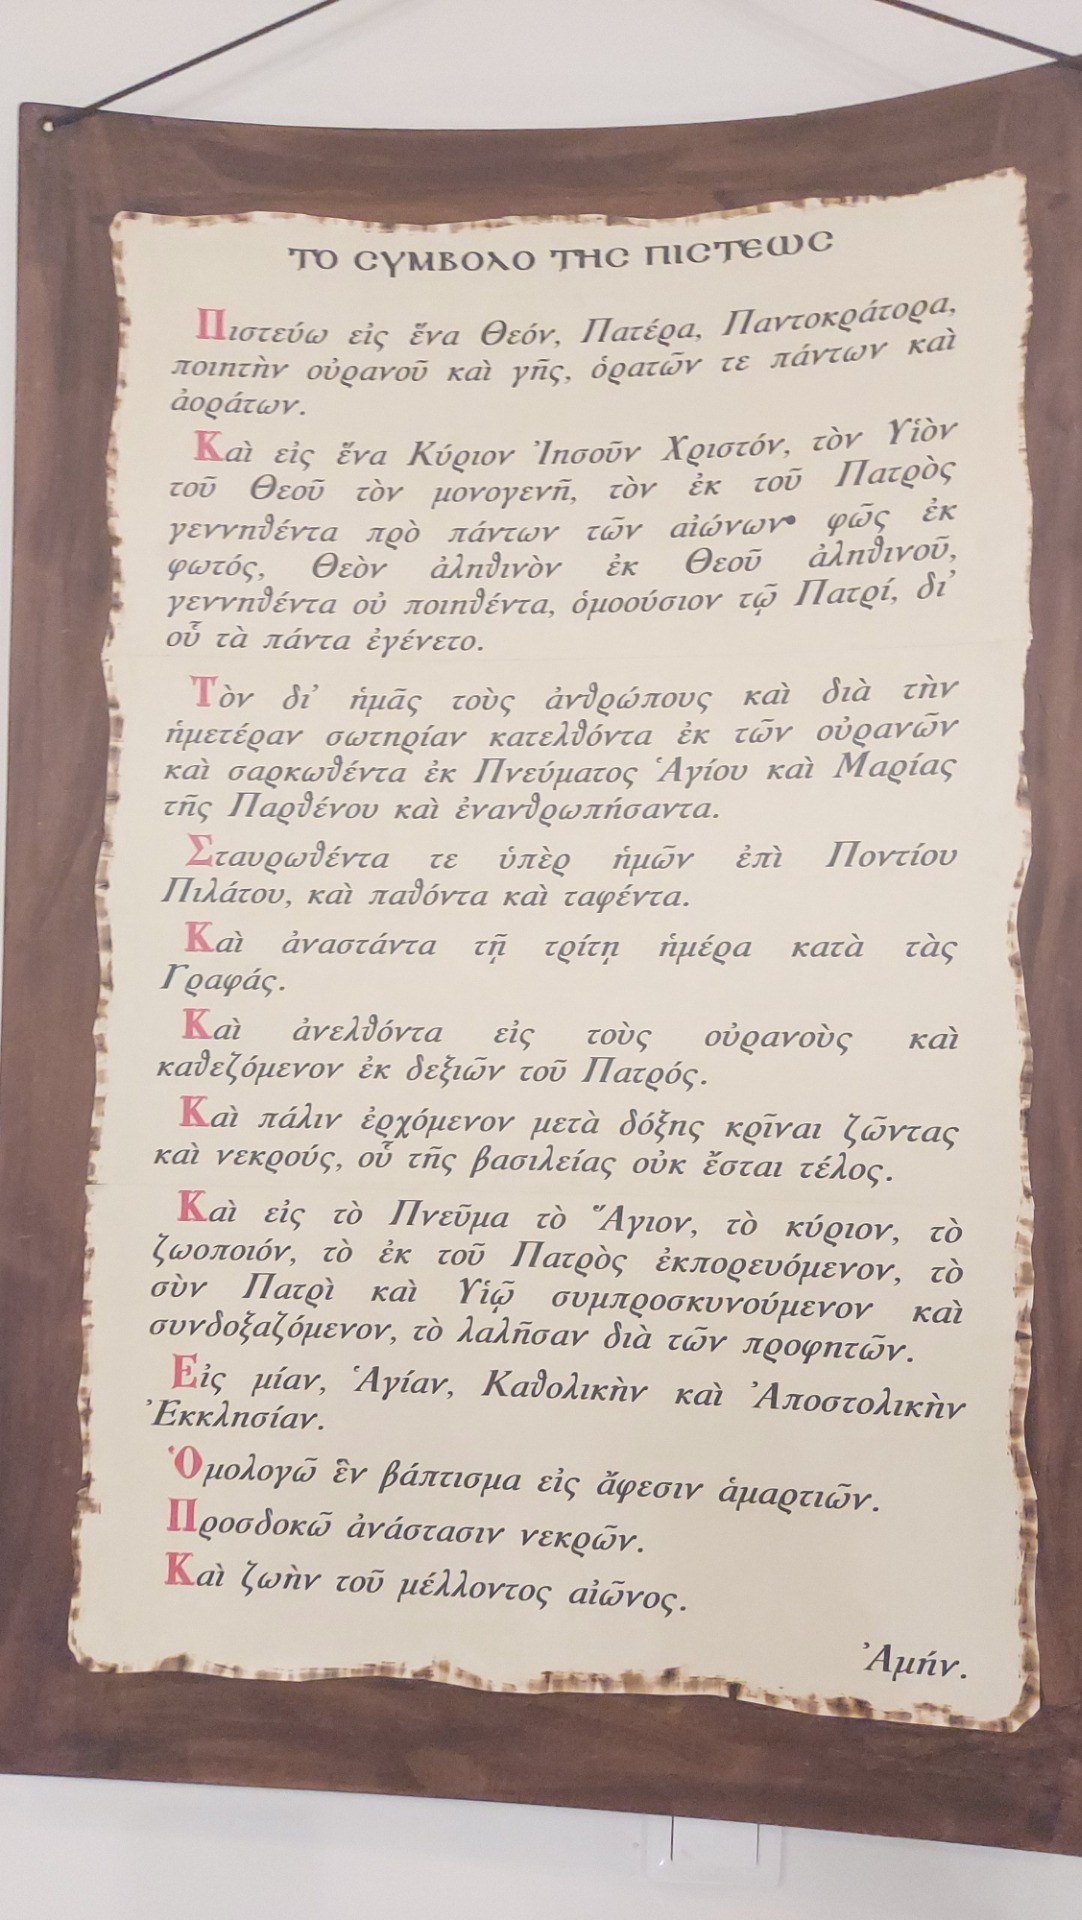 ΤΟ ΣΥΜΒΟΛΟ ΤΗΣ ΠΙΣΤΕΩΣ
Πιστεύω εἰς ἕνα Θεόν, Πατέρα, Παντοκράτορα,
ποιητὴν οὐρανοῦ καὶ γῆς, ὁρατῶν τε πάντων καὶ
ἀοράτων.
Καὶ εἰς ἕνα Κύριον Ἰησοῦν Χριστόν, τὸν Υἱὸν
τοῦ Θεοῦ τὸν μονογενῆ, τὸν ἐκ τοῦ Πατρὸς
γεννηθέντα πρὸ πάντων τῶν αἰώνων• φῶς ἐκ
φωτός, Θεὸν ἀληθινὸν ἐκ Θεοῦ ἀληθινοῦ,
γεννηθέντα οὐ ποιηθέντα, ὁμοούσιον τῷ Πατρί, δι᾽
οὗ τὰ πάντα ἐγένετο.
Τὸν δι᾽ ἡμᾶς τοὺς ἀνθρώπους καὶ διὰ τὴν
ἡμετέραν σωτηρίαν κατελθόντα ἐκ τῶν οὐρανῶν
καὶ σαρκωθέντα ἐκ Πνεύματος Ἁγίου καὶ Μαρίας
τῆς Παρθένου καὶ ἐνανθρωπήσαντα.
Σταυρωθέντα τε ὑπὲρ ἡμῶν ἐπὶ Ποντίου
Πιλάτου, καὶ παθόντα καὶ ταφέντα.
Καὶ ἀναστάντα τῇ τρίτῃ ἡμέρα κατὰ τὰς
Γραφάς.
Καὶ ἀνελθόντα εἰς τοὺς οὐρανοὺς καὶ
καθεζόμενον ἐκ δεξιῶν τοῦ Πατρός.
Καὶ πάλιν ἐρχόμενον μετὰ δόξης κρῖναι ζῶντας
καὶ νεκρούς, οὗ τῆς βασιλείας οὐκ ἔσται τέλος.
Καὶ εἰς τὸ Πνεῦμα τὸ Ἅγιον, τὸ κύριον, τὸ
ζωοποιόν, τὸ ἐκ τοῦ Πατρὸς ἐκπορευόμενον, τὸ
σὺν Πατρὶ καὶ Υἱῷ συμπροσκυνούμενον καὶ
συνδοξαζόμενον, τὸ λαλῆσαν διὰ τῶν προφητῶν.
Εἰς μίαν, Ἁγίαν, Καθολικὴν καὶ Ἀποστολικὴν
Ἐκκλησίαν.
Ὁμολογῶ ἓν βάπτισμα εἰς ἄφεσιν ἁμαρτιῶν.
Προσδοκῶ ἀνάστασιν νεκρῶν.
Καὶ ζωὴν τοῦ μέλλοντος αἰῶνος.
Ἀμήν.